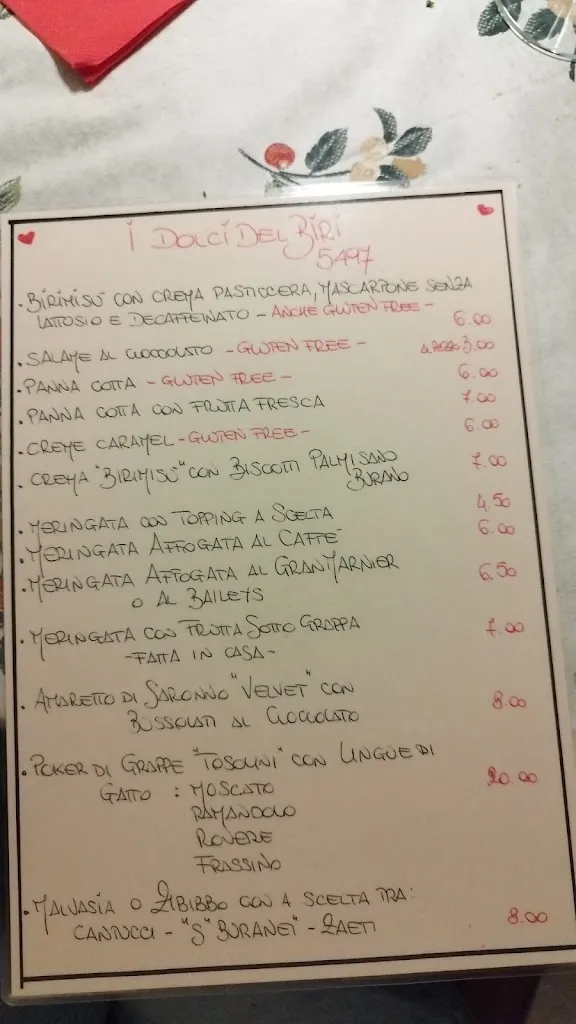 I DOLCI DEL BIRI
5497
• BIRIMISÙ CON CREMA PASTICCERA, MASCARPONE SENZA
LATTOSIO E DECAFFEINATO - ANCHE GLUTEN FREE - 6.00
• SALAME AL CIOCCOLATO - GLUTEN FREE - 3.00
• PANNA COTTA - GLUTEN FREE - 6.00
• PANNA COTTA CON FRUTTA FRESCA 7.00
• CREME CARAMEL - GLUTEN FREE - 6.00
• CREMA "BIRIMISÙ" CON BISCOTTI PALMISANO 7.00
BURANO
• MERINGATA CON TOPPING A SCELTA 4.50
• MERINGATA AFFOGATA AL CAFFE' 6.00
• MERINGATA AFFOGATA AL GRAN MARNIER 6.50
O AL BAILEYS
• MERINGATA CON FRUTTA SOTTO GRAPPA 7.00
- FATTA IN CASA -
• AMARETTO DI SARONNO "VELVET" CON 8.00
BUSSOLATI AL CIOCCOLATO
• POKER DI GRAPPE "TOSOLINI" CON LINGUE DI
GATTO : MOSCATO 20.00
RAMANDOLO
ROVERE
FRASSINO
• MALVASIA O ZIBIBBO CON A SCELTA TRA:
CANTUCCI - "S" BURANEI" - ZAETI 8.00